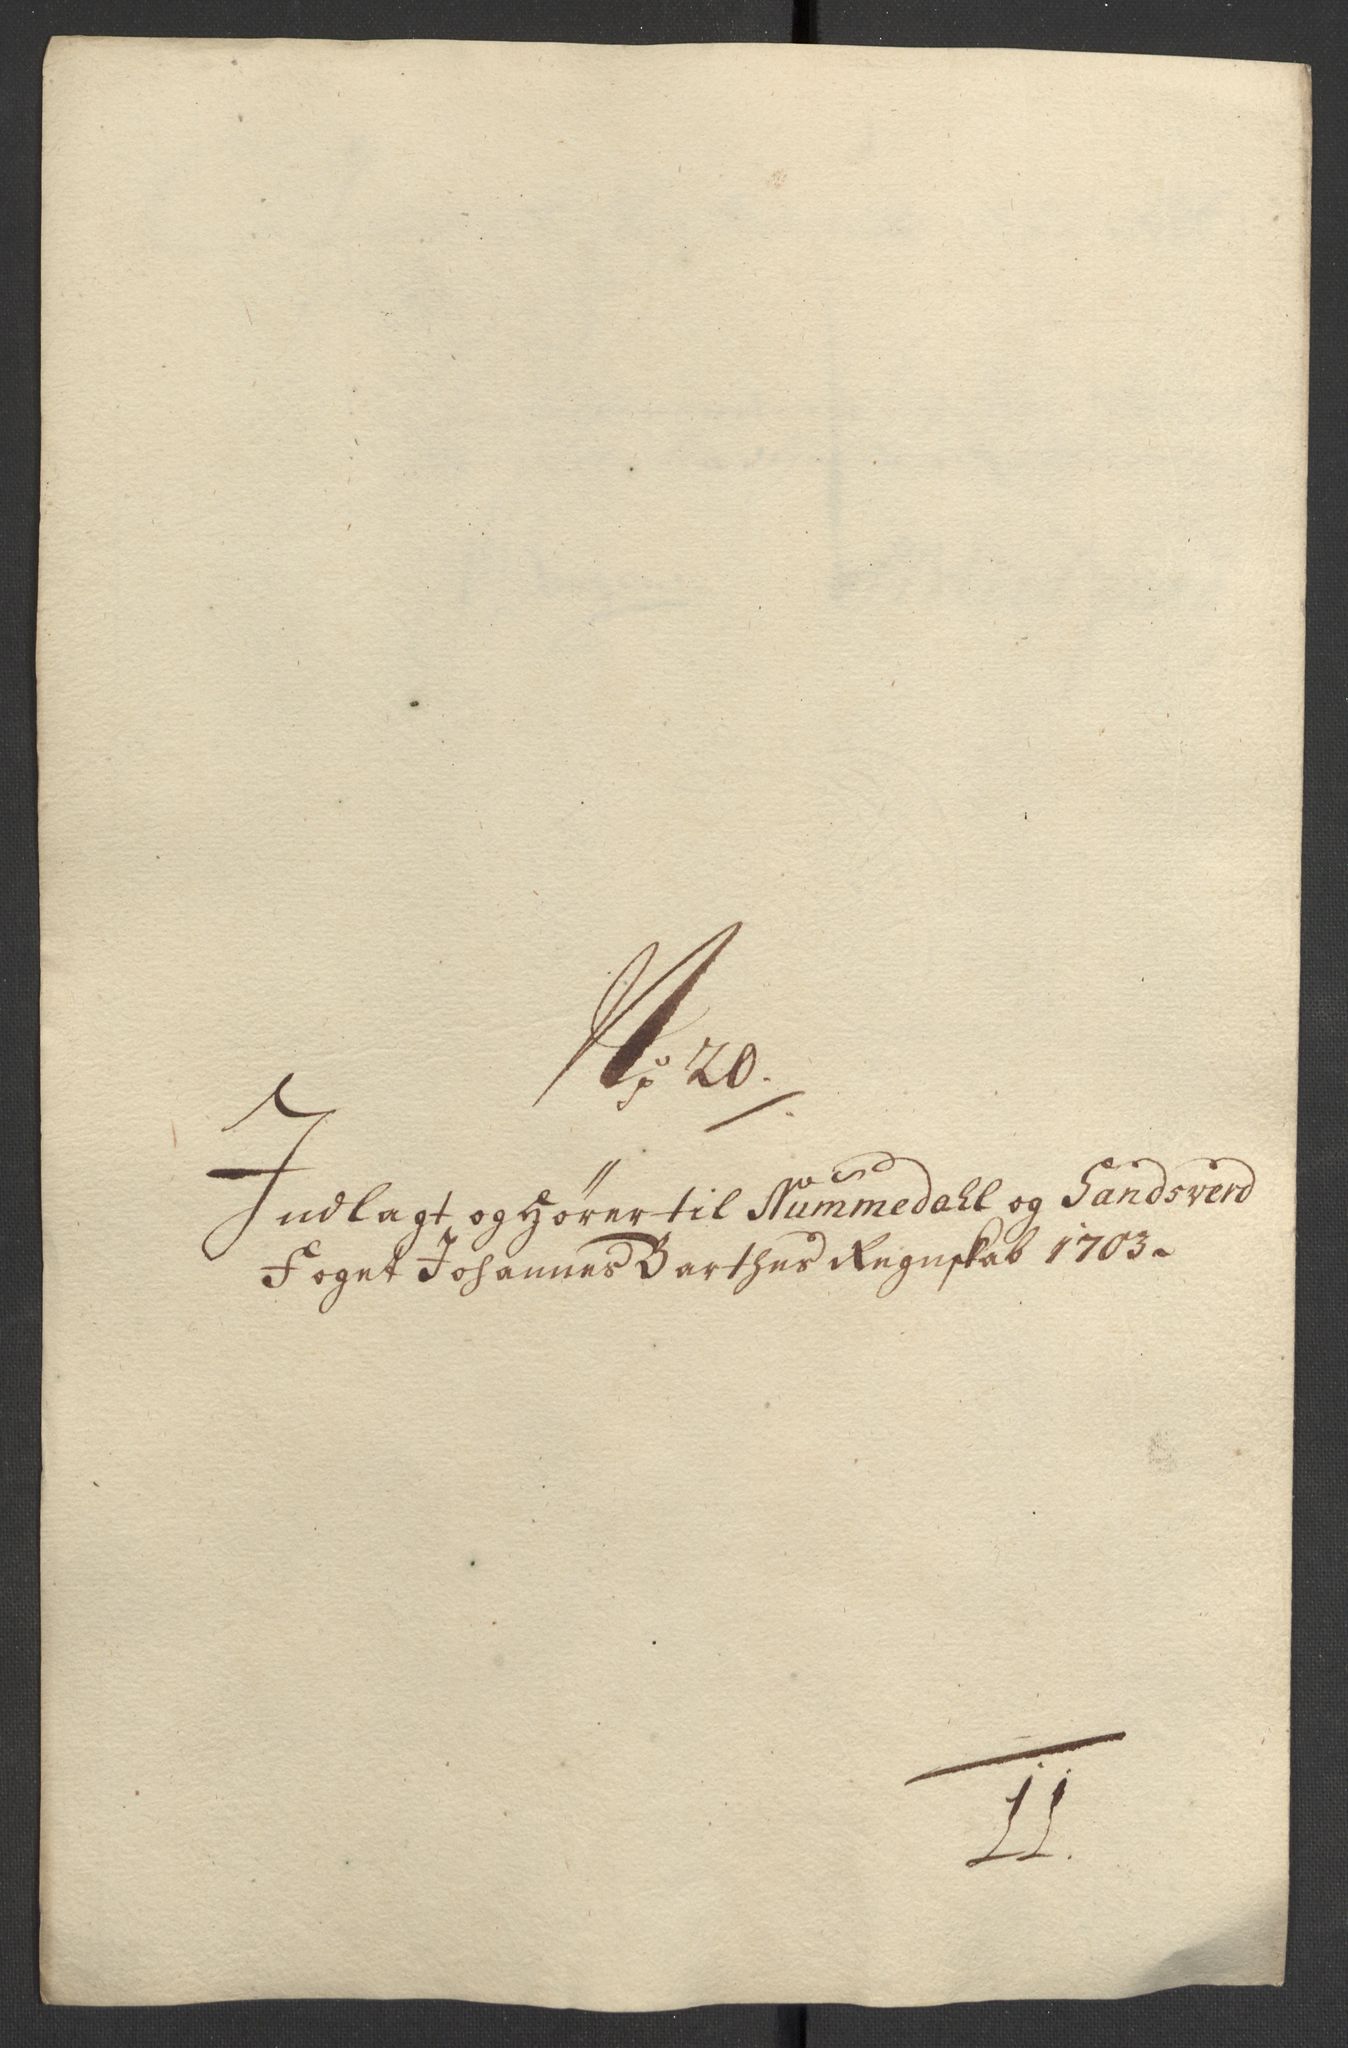 No 20.
Indlagt og Hører til Nummedahl og Sandsverd
Foget Johannes Barthes Regnskab 1703
11.